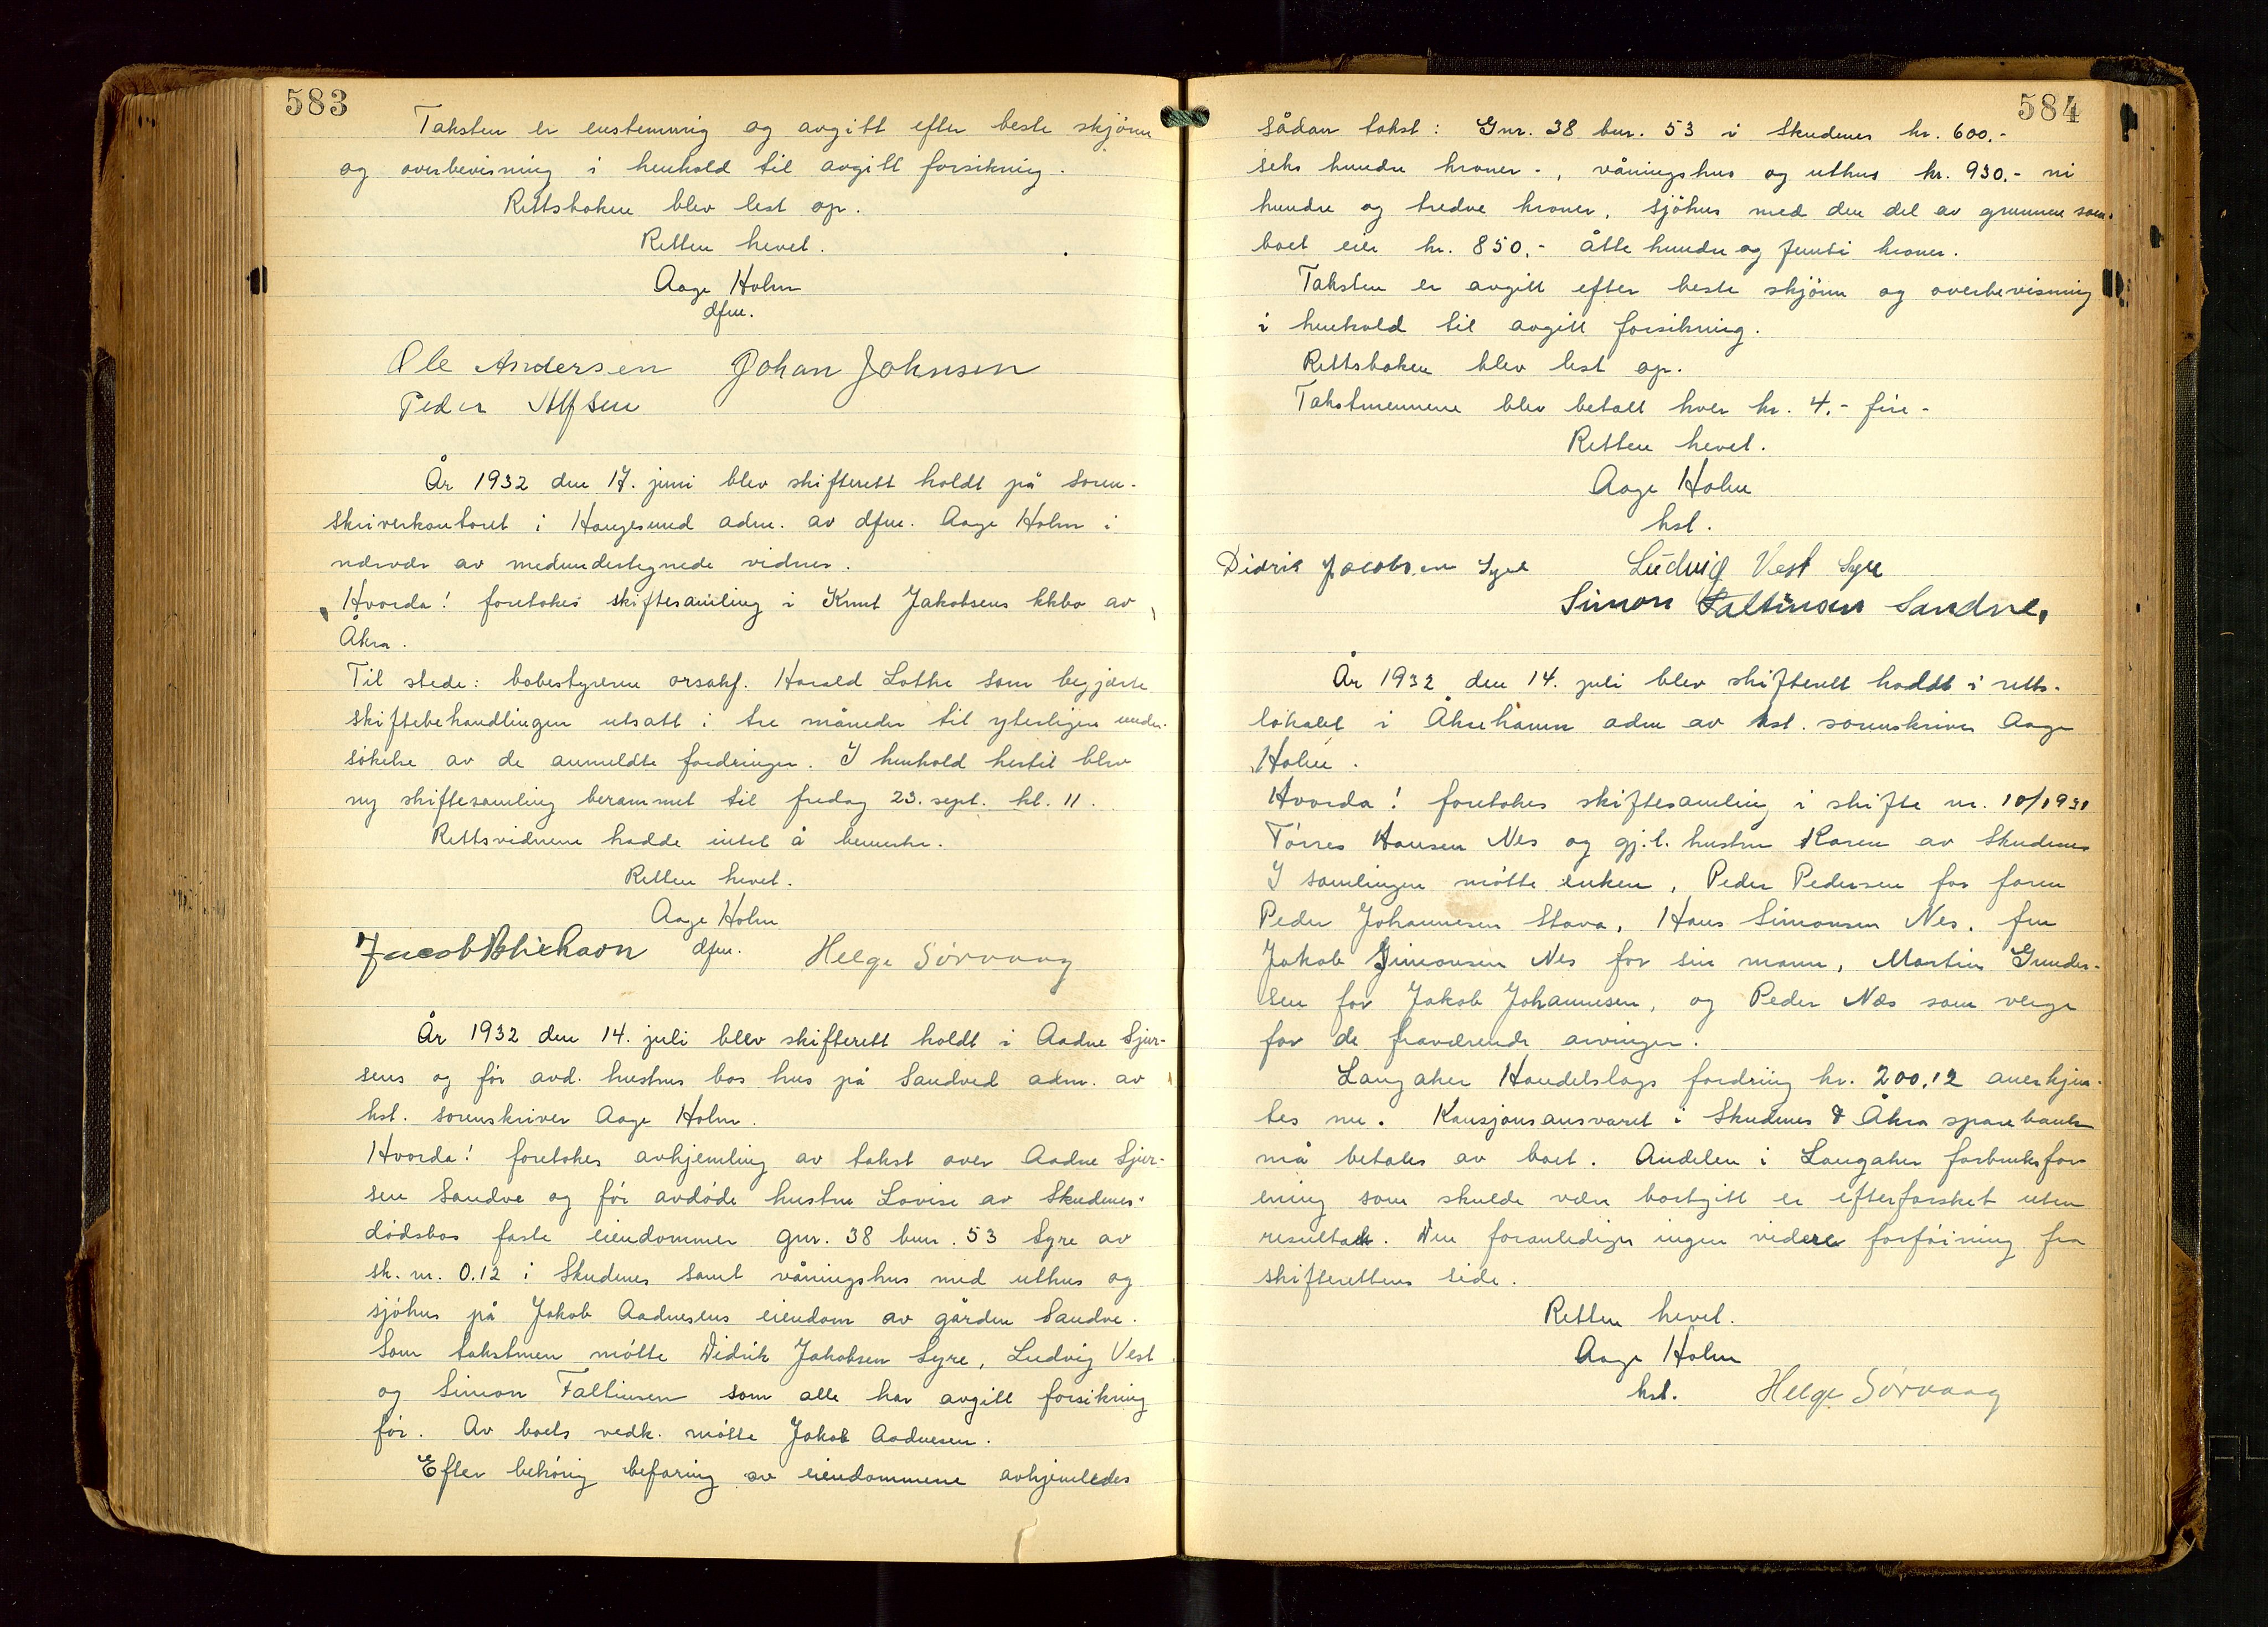 583
Taksten er enstemmig og avgitt efter beste skjönn
og overbevisning i henhold til avgitt forsikring.
Rettsboken blev lest op.
Retten hevet.
Aage Holm
dfm.
Ole Andersen Johan Johnsen
Peder Alfsen
År 1932 den 17. juni blev skifterett holdt på soren-
skriverkontoret i Haugesund adm. av dfm. Aage Holm i
nærvær av medundertegnede vidner.
Hvorda! foretokes skiftesamling i Knut Jakobsens kkbo av
Åkra.
Til stede: bobestyreren orsakf. Harald Lothe som begjærte
skiftebehandlingen utsatt i tre måneder til yterligere under-
sökelse av de anmeldte fordringer. I henhold hertil blev
ny skiftesamling berammet til fredag 23. sept. kl. 11.
Rettsvidnene hadde intet å bemerke.
Retten hevet.
Aage Holm
dfm. Helge Sörvaag
År 1932 den 14. juli blev skifterett holdt i Aadne Sjur-
sens og för avd. hustrus bos hus på Sandved adm. av
kst. sorenskriver Aage Holm.
Hvorda! foretokes avhjemling av takst over Aadne Sjur-
sen Sandve og för avdöde hustru Lovise av Skudenes
dödsbos faste eiendommer gnr. 38 bnr. 53 Syre av
sk. m. 0.12 i Skudenes samt våningshus med uthus og
sjöhus på Jakob Aadnesens eiendom av gården Sandve.
Som takstmen mötte Didrik Jakobsen Syre, Ludvig Vest
og Simon Faltinsen som alle har avgitt forsikring
för. Av boets vedk. mötte Jakob Aadnesen.
Efter behörig befaring av eiendommene avhjemledes
584
sådan takst: Gnr. 38 bnr. 53 i Skudenes kr. 600.-
seks hundre kroner -, våningshus og uthus kr. 930.- ni
hundre og tredve kroner, sjöhus med den del av grunnen som
boet eier kr. 850.- åtte hundre og femti kroner.
Taksten er avgitt efter beste skjönn og overbevisning
i henhold til avgitt forsikring.
Rettsboken blev lest op.
Takstmennene blev betalt hver kr. 4.- fire -
Retten hevet.
Aage Holm
kst.
Didrik Jacobsen Syre Ludvig Vest Syre
Simon Faltinsen Sandve.
År 1932 den 14. juli blev skifterett holdt i retts-
lokalet i Åkrehamn adm av kst. sorenskriver Aage
Holm.
Hvorda! foretokes skiftesamling i skifte nr. 10/1931
Törres Hansen Nes og gj.l. hustru Karen av Skudenes
I samlingen mötte enken, Peder Pedersen for faren
Peder Johannesen Stava, Hans Simonsen Nes, fru
Jakob Simonsen Nes for sin mann, Martin Gunder-
sen for Jakob Johannesen, og Peder Næs som verge
for de fraværende arvinger.
Langaker Handelslags fordring kr. 200,12 anerkjen-
tes nu. Kausjonsansvaret i Skudenes & Åkra sparebank
må betales av boet. Andelen i Langaker forbruksfor-
ening som skulde være bortgitt er efterforsket uten
resultat. Den foranlediger ingen videre forföining fra
skifterettens side.
Retten hevet.
Aage Holm
kst. Helge Sörvaag